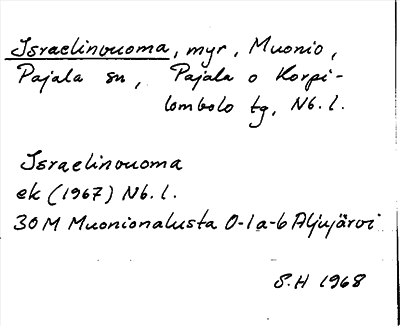 Israelinvuoma, myr, Muonio,
Pajala sn, Pajala o Korpi-
lombolo tg, Nb. l.
Israelinvuoma
ek (1967) Nb. l.
30 M Muonionalusta 0-1 a-b Aljujärvi
S.H 1968